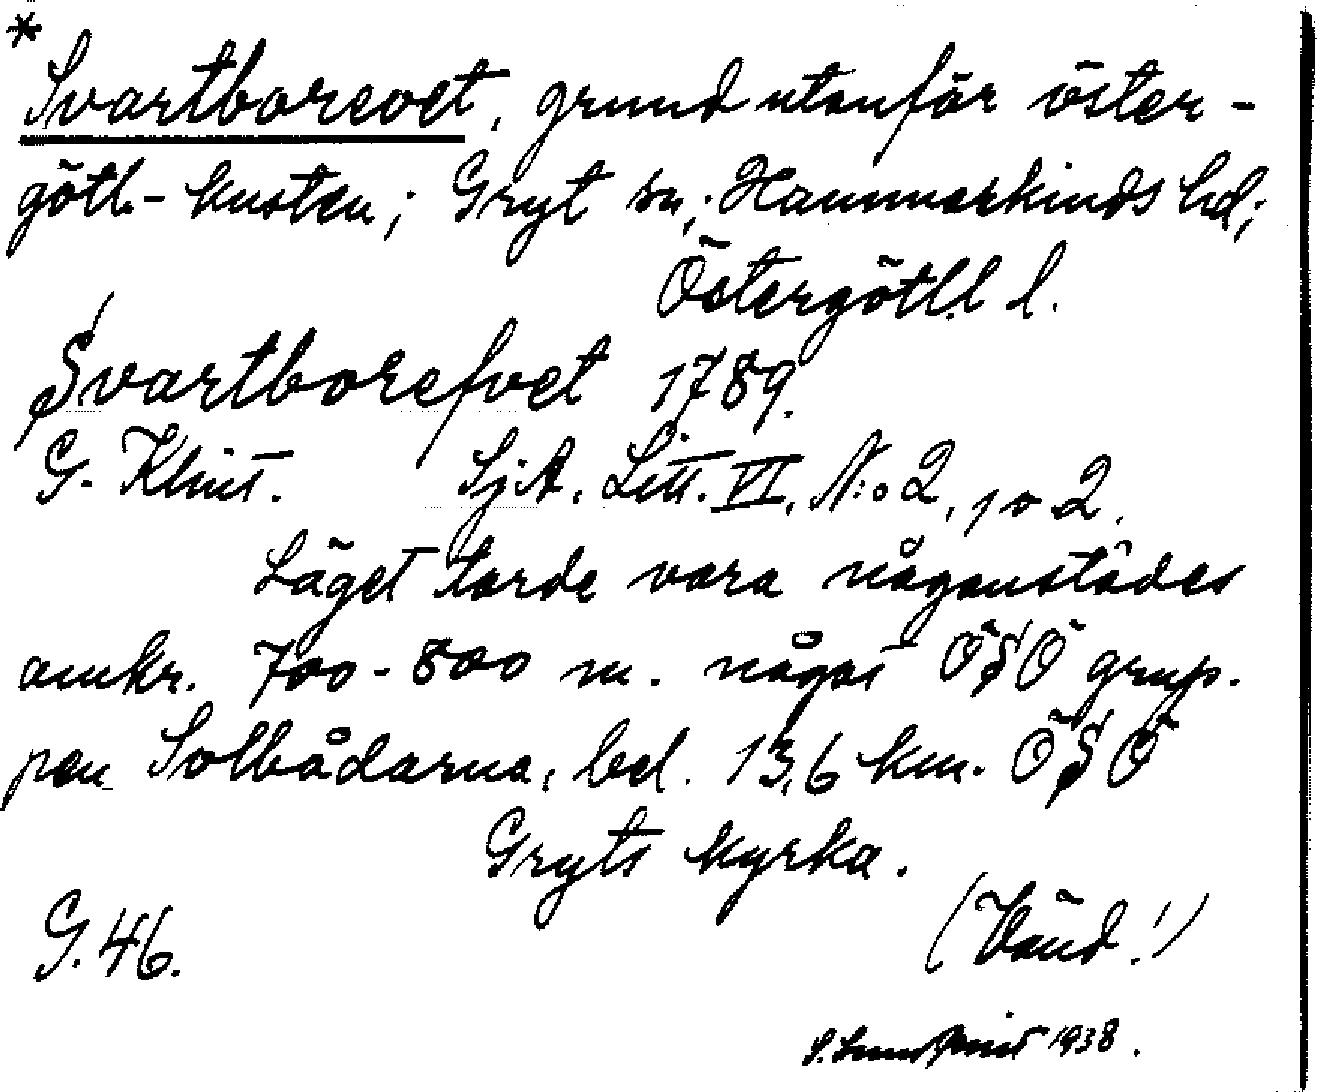 *
Svartborevet, grund utanför öster-
götl.-kusten; Gryt sn; Hammarkinds hd;
Östergötl.l l.
Svartborefvet 1789.
G. Klint. SjA. Litt. VI. N:o 2, 10 2.
Läget torde vara någonstädes
omkr. 700-800 m. något ÖSÖ grup-
pen Solbådarna, bel. 13,6 km. ÖSÖ
Gryts kyrka.
G. 46. (Vänd!)
1938.